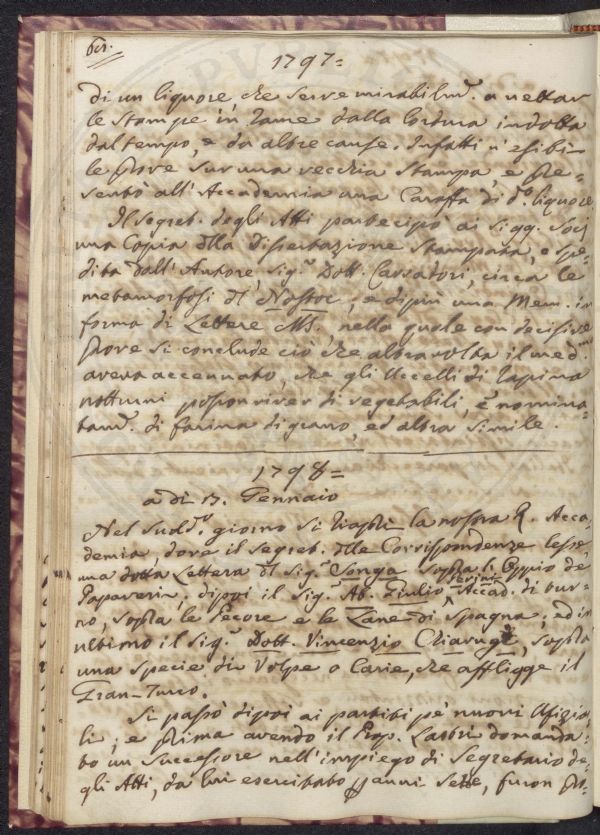 1797=
di un liquore che serve mirabilmᵉ. a nettar
le stampe in rame dalla lordura indotta
dal tempo, e da altre cause. Infatti n'esibì
le prove sur una vecchia stampa, e pre-
sentò all'Accademia una Caraffa di dᵒ. liquore
Il Segret. degli Atti partecipò ai Sigg. Socj
una Copia dlla Dissertazione Stampata, e spe-
dita dall'Autore, Sigʳ Dott. Carradori, circa le
metamorfosi dl Nostoc, e dipiù una Mem. in
forma di Lettere MS. nella quale con decisive
prove si conclude ciò che altra volta il medᵐᵒ
aveva accennato, che gli Uccelli di rapina
notturni posson viver di vegetabili, e nomina-
tamᵉ. di farina di grano, ed altra simile.
1798=
a dì 17. Gennaio
Nel sudd.ᵒ giorno si riaprì la nostra R. Acca-
demia, dove il Segret. dlle Corrispondenze lesse
una dotta Lettera dl Sigʳ Songa sopra l'Oppio de'
Papaveri; dipoi il Sig. Ab. Giulio Perini Accad. di tur-
no, sopra le Pecore e le Lane di Spagna; ed in
ultimo il Sigʳ Dott. Vincenzio Chiarugi, sopra
una specie di Volpe o Carie, che affligge il
Gran-Turco.
Si passò dipoi ai partiti pe' nuovi Ufizia-
li; e prima avendo il Prop. Lastri domanda-
to un Successore nell'impiego di Segretario de-
gli Atti, da lui esercitato p anni sette, furon pr-